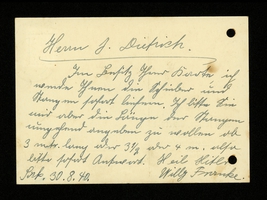 Herrn J. Dietrich.
Im Besitz Ihrer Karte ich
werde Ihnen die Schieber und
Stangen sofort liefern. Ich bitte Sie
mir aber die Länge der Stangen
umgehend angeben zu wollen ob
3 mtr. lang oder 3½ oder 4 m. also
bitte sofort Antwort. Heil Hitler
30.8.40. Willy